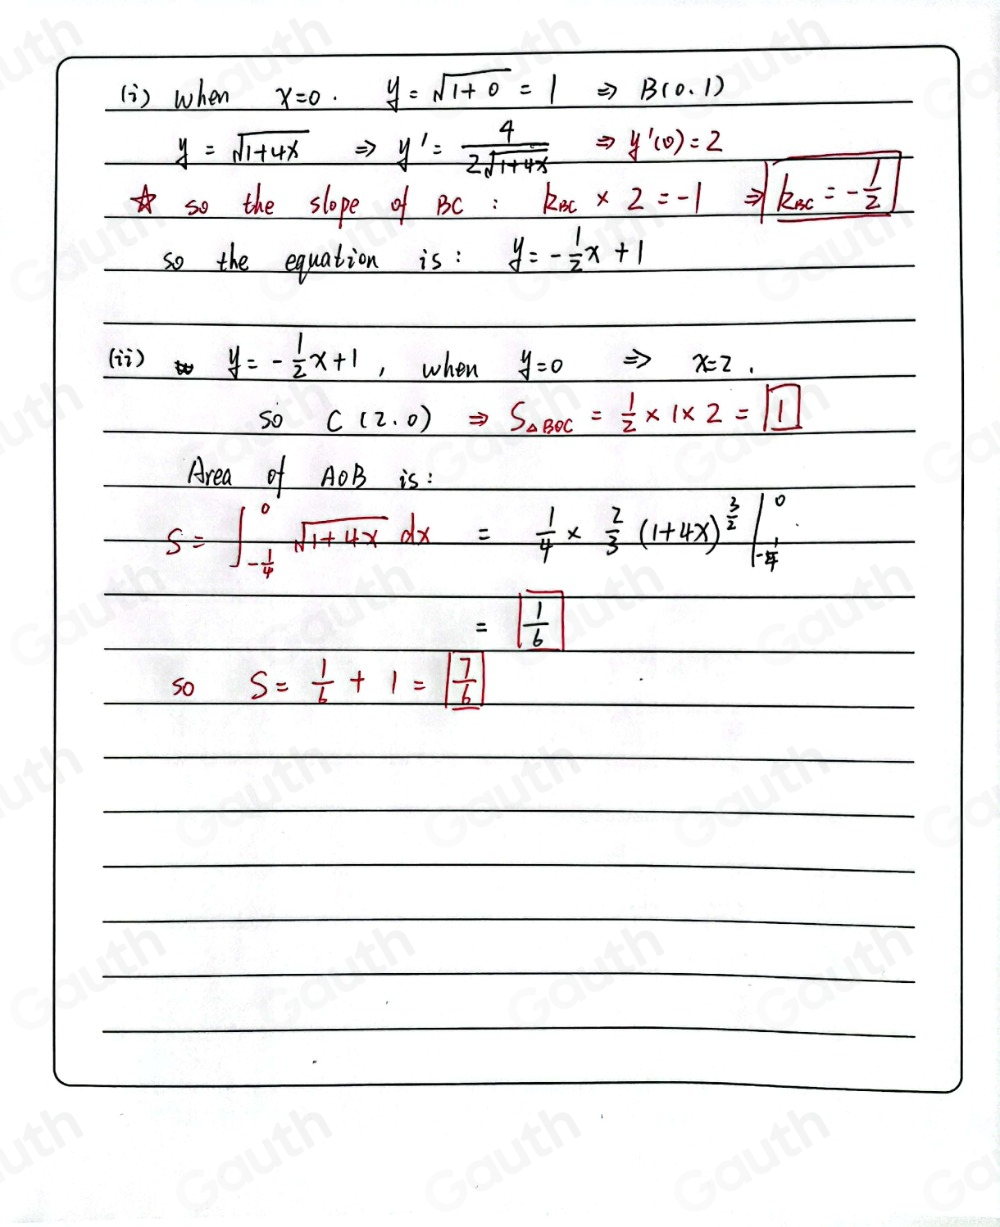 (i) when x=0. y = √1+0 = 1 ⇒ B(0.1)
y = √1+4x ⇒ y' = 4/2√1+4x ⇒ y'(0) = 2
☆ so the slope of BC : kBC × 2 = -1 ⇒ kBC = -1/2
so the equation is : y = -1/2x + 1
(ii) y = -1/2x+1 , when y=0 ⇒ x=2 .
so C (2.0) ⇒ S△BOC = 1/2 × 1 × 2 = 1
Area of AOB is :
S = ∫_{-1/4}^{0} √1+4x dx = 1/4 × 2/3 (1+4x)^{3/2} |_{-1/4}^{0}
= 1/6
so S = 1/6 + 1 = 7/6